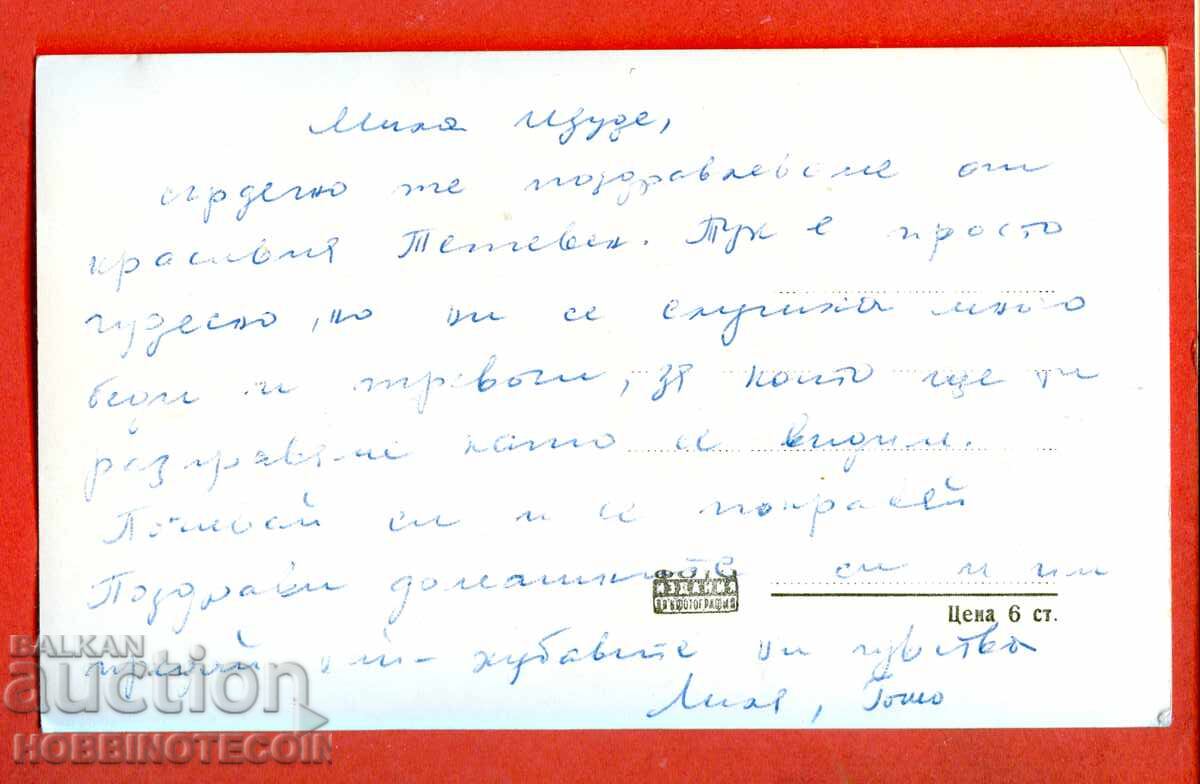 Мила
сърдечно те поздравяваме от
красивия Тетевен. Тук е просто
чудесно, но ни се случиха много
беди и тревоги, за които ще ти
разправяме като се видим.
Почивай си и се
Поздрави домашните си и им
предай най-хубавите ни чувства
Лиля, Гошо
ИЗДАНИЕ
ФОТОГРАФИЯ
Цена 6 ст.
BALKAN
auction
HOBBINOTECOIN